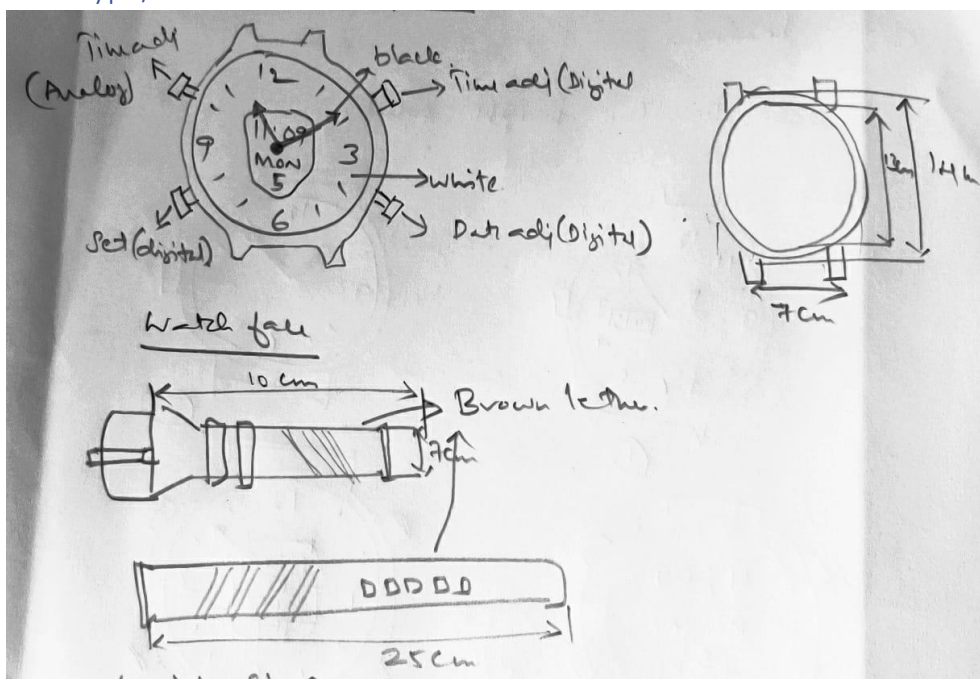 Time adj
(Analog)
black
Time adj (Digital
12
9
3
6
11:09
MON
5
white
Set (digital)
Date adj (Digital)
14cm
7cm
Watch face
10 cm
Brown lether.
7cm
25cm